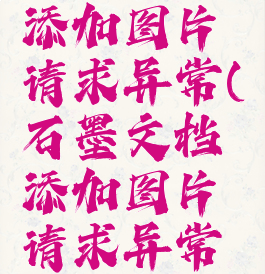 添加图片
请求异常(
石墨文档
添加图片
请求异常